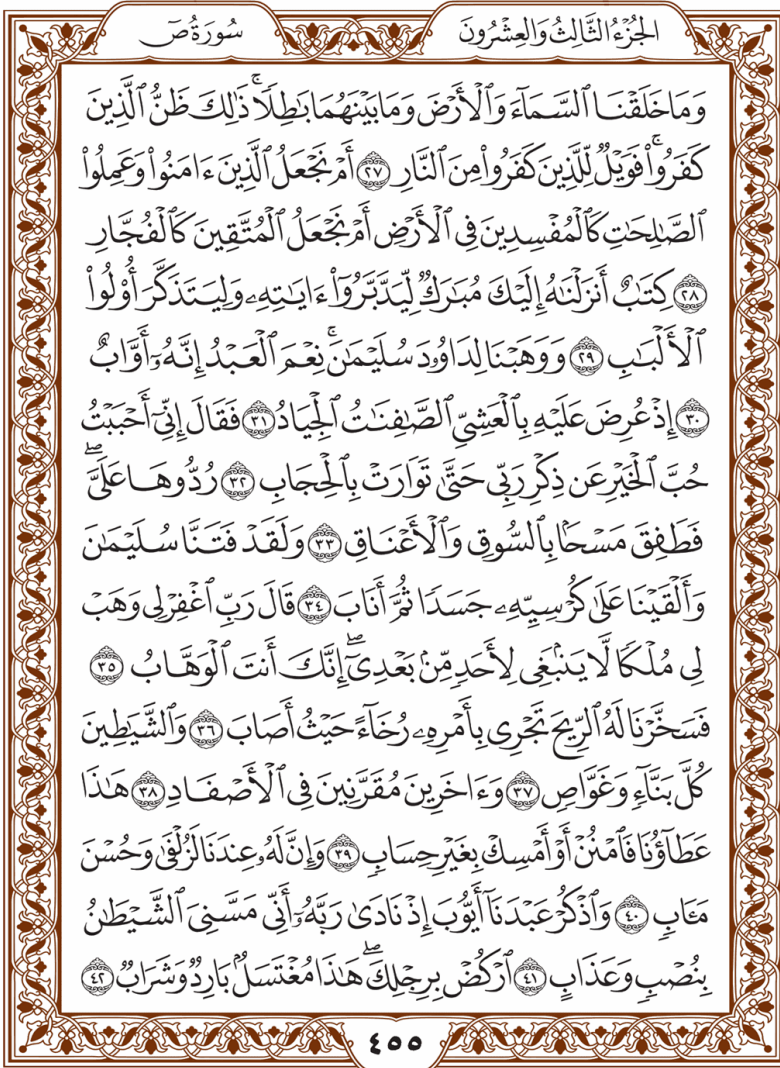 الجُزْءُ الثَّالِثُ وَالعِشْرُونَ سُورَةُ صٓ
وَمَا خَلَقْنَا ٱلسَّمَآءَ وَٱلْأَرْضَ وَمَا بَيْنَهُمَا بَٰطِلًاۚ ذَٰلِكَ ظَنُّ ٱلَّذِينَ
كَفَرُواْۚ فَوَيْلٌ لِّلَّذِينَ كَفَرُواْ مِنَ ٱلنَّارِ ٢٧ أَمْ نَجْعَلُ ٱلَّذِينَ ءَامَنُواْ وَعَمِلُواْ
ٱلصَّٰلِحَٰتِ كَٱلْمُفْسِدِينَ فِى ٱلْأَرْضِ أَمْ نَجْعَلُ ٱلْمُتَّقِينَ كَٱلْفُجَّارِ
٢٨ كِتَٰبٌ أَنزَلْنَٰهُ إِلَيْكَ مُبَٰرَكٌ لِّيَدَّبَّرُوٓاْ ءَايَٰتِهِۦ وَلِيَتَذَكَّرَ أُوْلُواْ
ٱلْأَلْبَٰبِ ٢٩ وَوَهَبْنَا لِدَاوُۥدَ سُلَيْمَٰنَۚ نِعْمَ ٱلْعَبْدُ إِنَّهُۥٓ أَوَّابٌ
٣٠ إِذْ عُرِضَ عَلَيْهِ بِٱلْعَشِىِّ ٱلصَّٰفِنَٰتُ ٱلْجِيَادُ ٣١ فَقَالَ إِنِّىٓ أَحْبَبْتُ
حُبَّ ٱلْخَيْرِ عَن ذِكْرِ رَبِّى حَتَّىٰ تَوَارَتْ بِٱلْحِجَابِ ٣٢ رُدُّوهَا عَلَىَّۖ
فَطَفِقَ مَسْحًۢا بِٱلسُّوقِ وَٱلْأَعْنَاقِ ٣٣ وَلَقَدْ فَتَنَّا سُلَيْمَٰنَ
وَأَلْقَيْنَا عَلَىٰ كُرْسِيِّهِۦ جَسَدًا ثُمَّ أَنَابَ ٣٤ قَالَ رَبِّ ٱغْفِرْ لِى وَهَبْ
لِى مُلْكًا لَّا يَنۢبَغِى لِأَحَدٍ مِّنۢ بَعْدِىٓۖ إِنَّكَ أَنتَ ٱلْوَهَّابُ ٣٥
فَسَخَّرْنَا لَهُ ٱلرِّيحَ تَجْرِى بِأَمْرِهِۦ رُخَآءً حَيْثُ أَصَابَ ٣٦ وَٱلشَّيَٰطِينَ
كُلَّ بَنَّآءٍ وَغَوَّاصٍ ٣٧ وَءَاخَرِينَ مُقَرَّنِينَ فِى ٱلْأَصْفَادِ ٣٨ هَٰذَا
عَطَآؤُنَا فَٱمْنُنْ أَوْ أَمْسِكْ بِغَيْرِ حِسَابٍ ٣٩ وَإِنَّ لَهُۥ عِندَنَا لَزُلْفَىٰ وَحُسْنَ
مَـَٔابٍ ٤٠ وَٱذْكُرْ عَبْدَنَآ أَيُّوبَ إِذْ نَادَىٰ رَبَّهُۥٓ أَنِّى مَسَّنِىَ ٱلشَّيْطَٰنُ
بِنُصْبٍ وَعَذَابٍ ٤١ ٱرْكُضْ بِرِجْلِكَۖ هَٰذَا مُغْتَسَلٌۢ بَارِدٌ وَشَرَابٌ ٤٢
٤٥٥